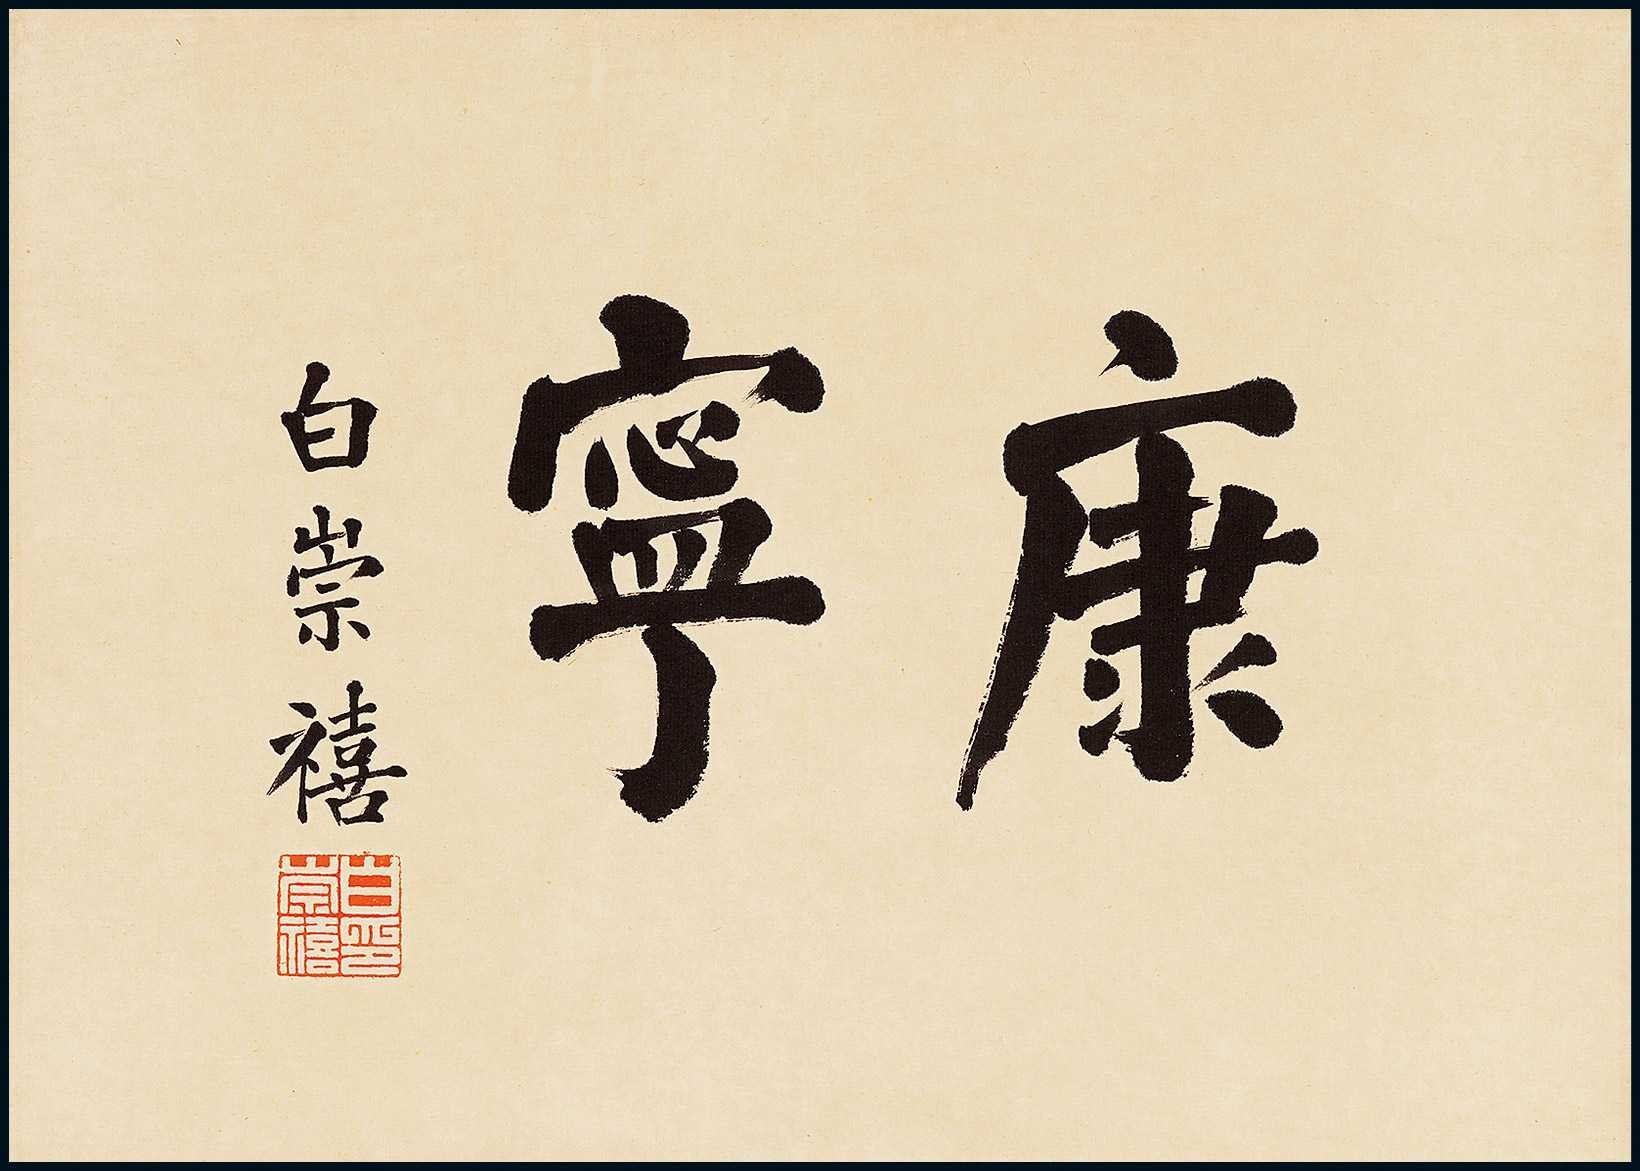 康寧
白崇禧
白崇禧印